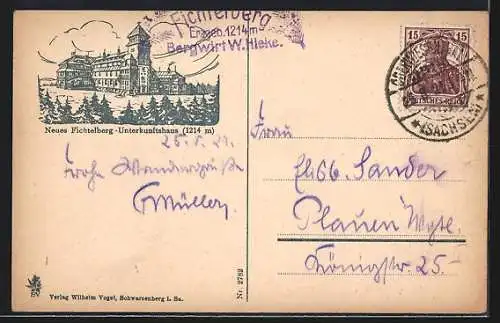 Fichtelberg
Erzgeb. 1214 m
Bergwirt W. Hieke.
15 15
DEUTSCHES REICH
(SACHSEN)
Neues Fichtelberg-Unterkunftshaus (1214 m)
25. 5. 21.
Frohe Wandergrüße
GMüller.
Frau
Elisb. Sander
Plauen Vogtl.
Königstr. 25.-
Verlag Wilhelm Vogel, Schwarzenberg i. Sa.
Nr. 2782